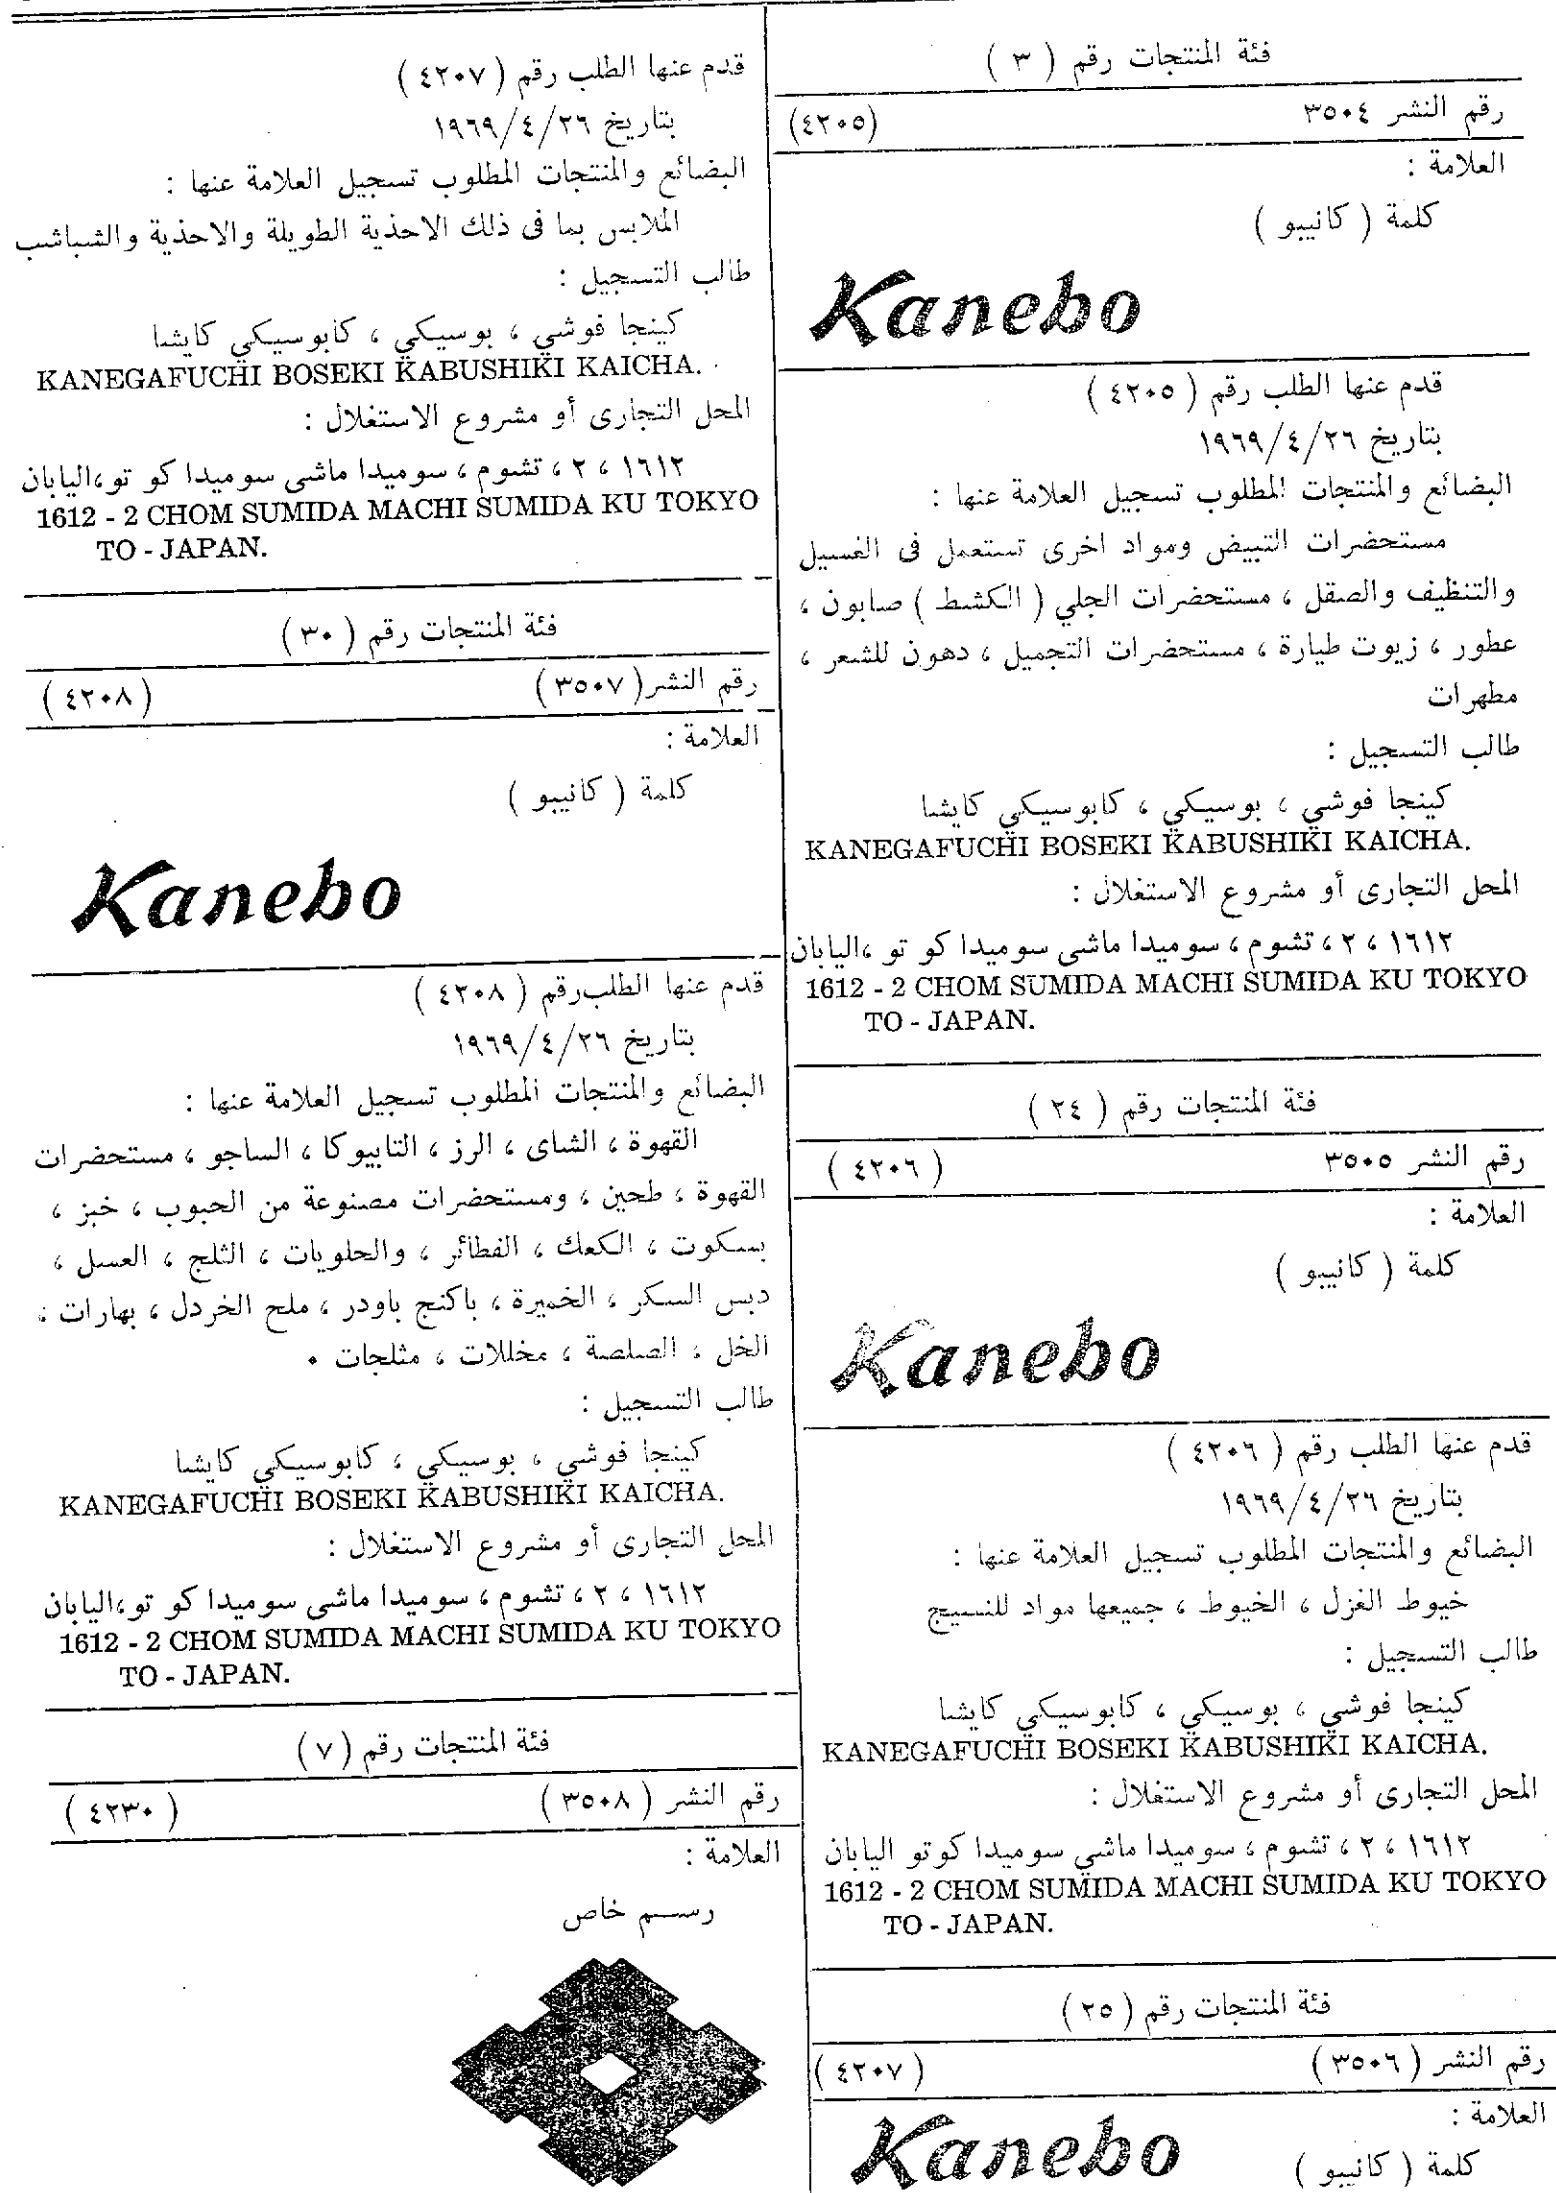 فئة المنتجات رقم ( ٣ )
رقم النشر ٣٥٠٤ (٤٢٠٥)
العلامة :
كلمة ( كانيبو )
Kanebo
قدم عنها الطلب رقم ( ٤٢٠٥ )
بتاريخ ١٩٦٩/٤/٢٦
البضائع والمنتجات المطلوب تسجيل العلامة عنها :
مستحضرات التبيض ومواد اخرى تستعمل فى الغسيل
والتنظيف والصقل ، مستحضرات الجلي ( الكشط ) صابون ،
عطور ، زيوت طيارة ، مستحضرات التجميل ، دهون للشعر ،
مطهرات
طالب التسجيل :
كينجا فوشي ، بوسيكي ، كابوسيكي كايشا
KANEGAFUCHI BOSEKI KABUSHIKI KAICHA.
المحل التجارى أو مشروع الاستغلال :
١٦١٢ ، ٢ ، تشوم ، سوميدا ماشى سوميدا كو تو ،اليابان
1612 - 2 CHOM SUMIDA MACHI SUMIDA KU TOKYO
TO - JAPAN.
فئة المنتجات رقم ( ٢٤ )
رقم النشر ٣٥٠٥ ( ٤٢٠٦ )
العلامة :
كلمة ( كانيبو )
Kanebo
قدم عنها الطلب رقم ( ٤٢٠٦ )
بتاريخ ١٩٦٩/٤/٢٦
البضائع والمنتجات المطلوب تسجيل العلامة عنها :
خيوط الغزل ، الخيوط ، جميعها مواد للنسيج
طالب التسجيل :
كينجا فوشي ، بوسيكي ، كابوسيكي كايشا
KANEGAFUCHI BOSEKI KABUSHIKI KAICHA.
المحل التجارى أو مشروع الاستغلال :
١٦١٢ ، ٢ ، تشوم ، سوميدا ماشي سوميدا كوتو اليابان
1612 - 2 CHOM SUMIDA MACHI SUMIDA KU TOKYO
TO - JAPAN.
فئة المنتجات رقم ( ٢٥ )
رقم النشر ( ٣٥٠٦ ) ( ٤٢٠٧ )
العلامة :
كلمة ( كانيبو )
Kanebo
قدم عنها الطلب رقم ( ٤٢٠٧ )
بتاريخ ١٩٦٩/٤/٢٦
البضائع والمنتجات المطلوب تسجيل العلامة عنها :
الملابس بما فى ذلك الاحذية الطويلة والاحذية والشباشب
طالب التسجيل :
كينجا فوشي ، بوسيكي ، كابوسيكي كايشا
KANEGAFUCHI BOSEKI KABUSHIKI KAICHA.
المحل التجارى أو مشروع الاستغلال :
١٦١٢ ، ٢ ، تشوم ، سوميدا ماشى سوميدا كو تو،اليابان
1612 - 2 CHOM SUMIDA MACHI SUMIDA KU TOKYO
TO - JAPAN.
فئة المنتجات رقم ( ٣٠ )
رقم النشر( ٣٥٠٧ ) ( ٤٢٠٨ )
العلامة :
كلمة ( كانيبو )
Kanebo
قدم عنها الطلب رقم ( ٤٢٠٨ )
بتاريخ ١٩٦٩/٤/٢٦
البضائع والمنتجات المطلوب تسجيل العلامة عنها :
القهوة ، الشاى ، الرز ، التابيوكا ، الساجو ، مستحضرات
القهوة ، طحين ، ومستحضرات مصنوعة من الحبوب ، خبز ،
بسكوت ، الكعك ، الفطائر ، والحلويات ، الثلج ، العسل ،
دبس السكر ، الخميرة ، باكنج باودر ، ملح الخردل ، بهارات ،
الخل ، الصلصة ، مخللات ، مثلجات .
طالب التسجيل :
كينجا فوشي ، بوسيكي ، كابوسيكي كايشا
KANEGAFUCHI BOSEKI KABUSHIKI KAICHA.
المحل التجارى أو مشروع الاستغلال :
١٦١٢ ، ٢ ، تشوم ، سوميدا ماشى سوميدا كو تو،اليابان
1612 - 2 CHOM SUMIDA MACHI SUMIDA KU TOKYO
TO - JAPAN.
فئة المنتجات رقم ( ٧ )
رقم النشر ( ٣٥٠٨ ) ( ٤٢٣٠ )
العلامة :
رسم خاص